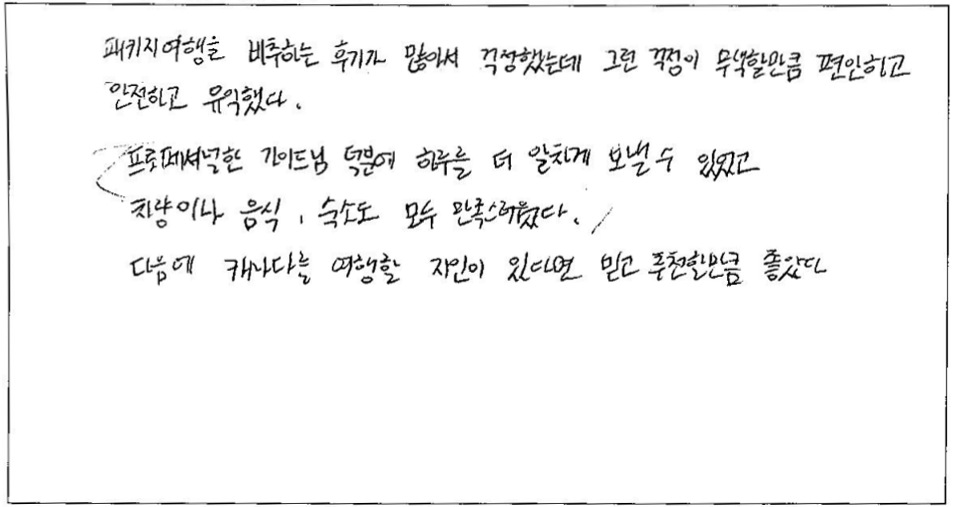 패키지여행을 비추하는 후기가 많아서 걱정했는데 그런 걱정이 무색할만큼 편안하고
안전하고 유익했다.
프로페셔널한 가이드님 덕분에 하루를 더 알차게 보낼 수 있었고
차량이나 음식, 숙소도 모두 만족스러웠다.
다음에 캐나다를 여행할 지인이 있다면 믿고 추천할만큼 좋았다